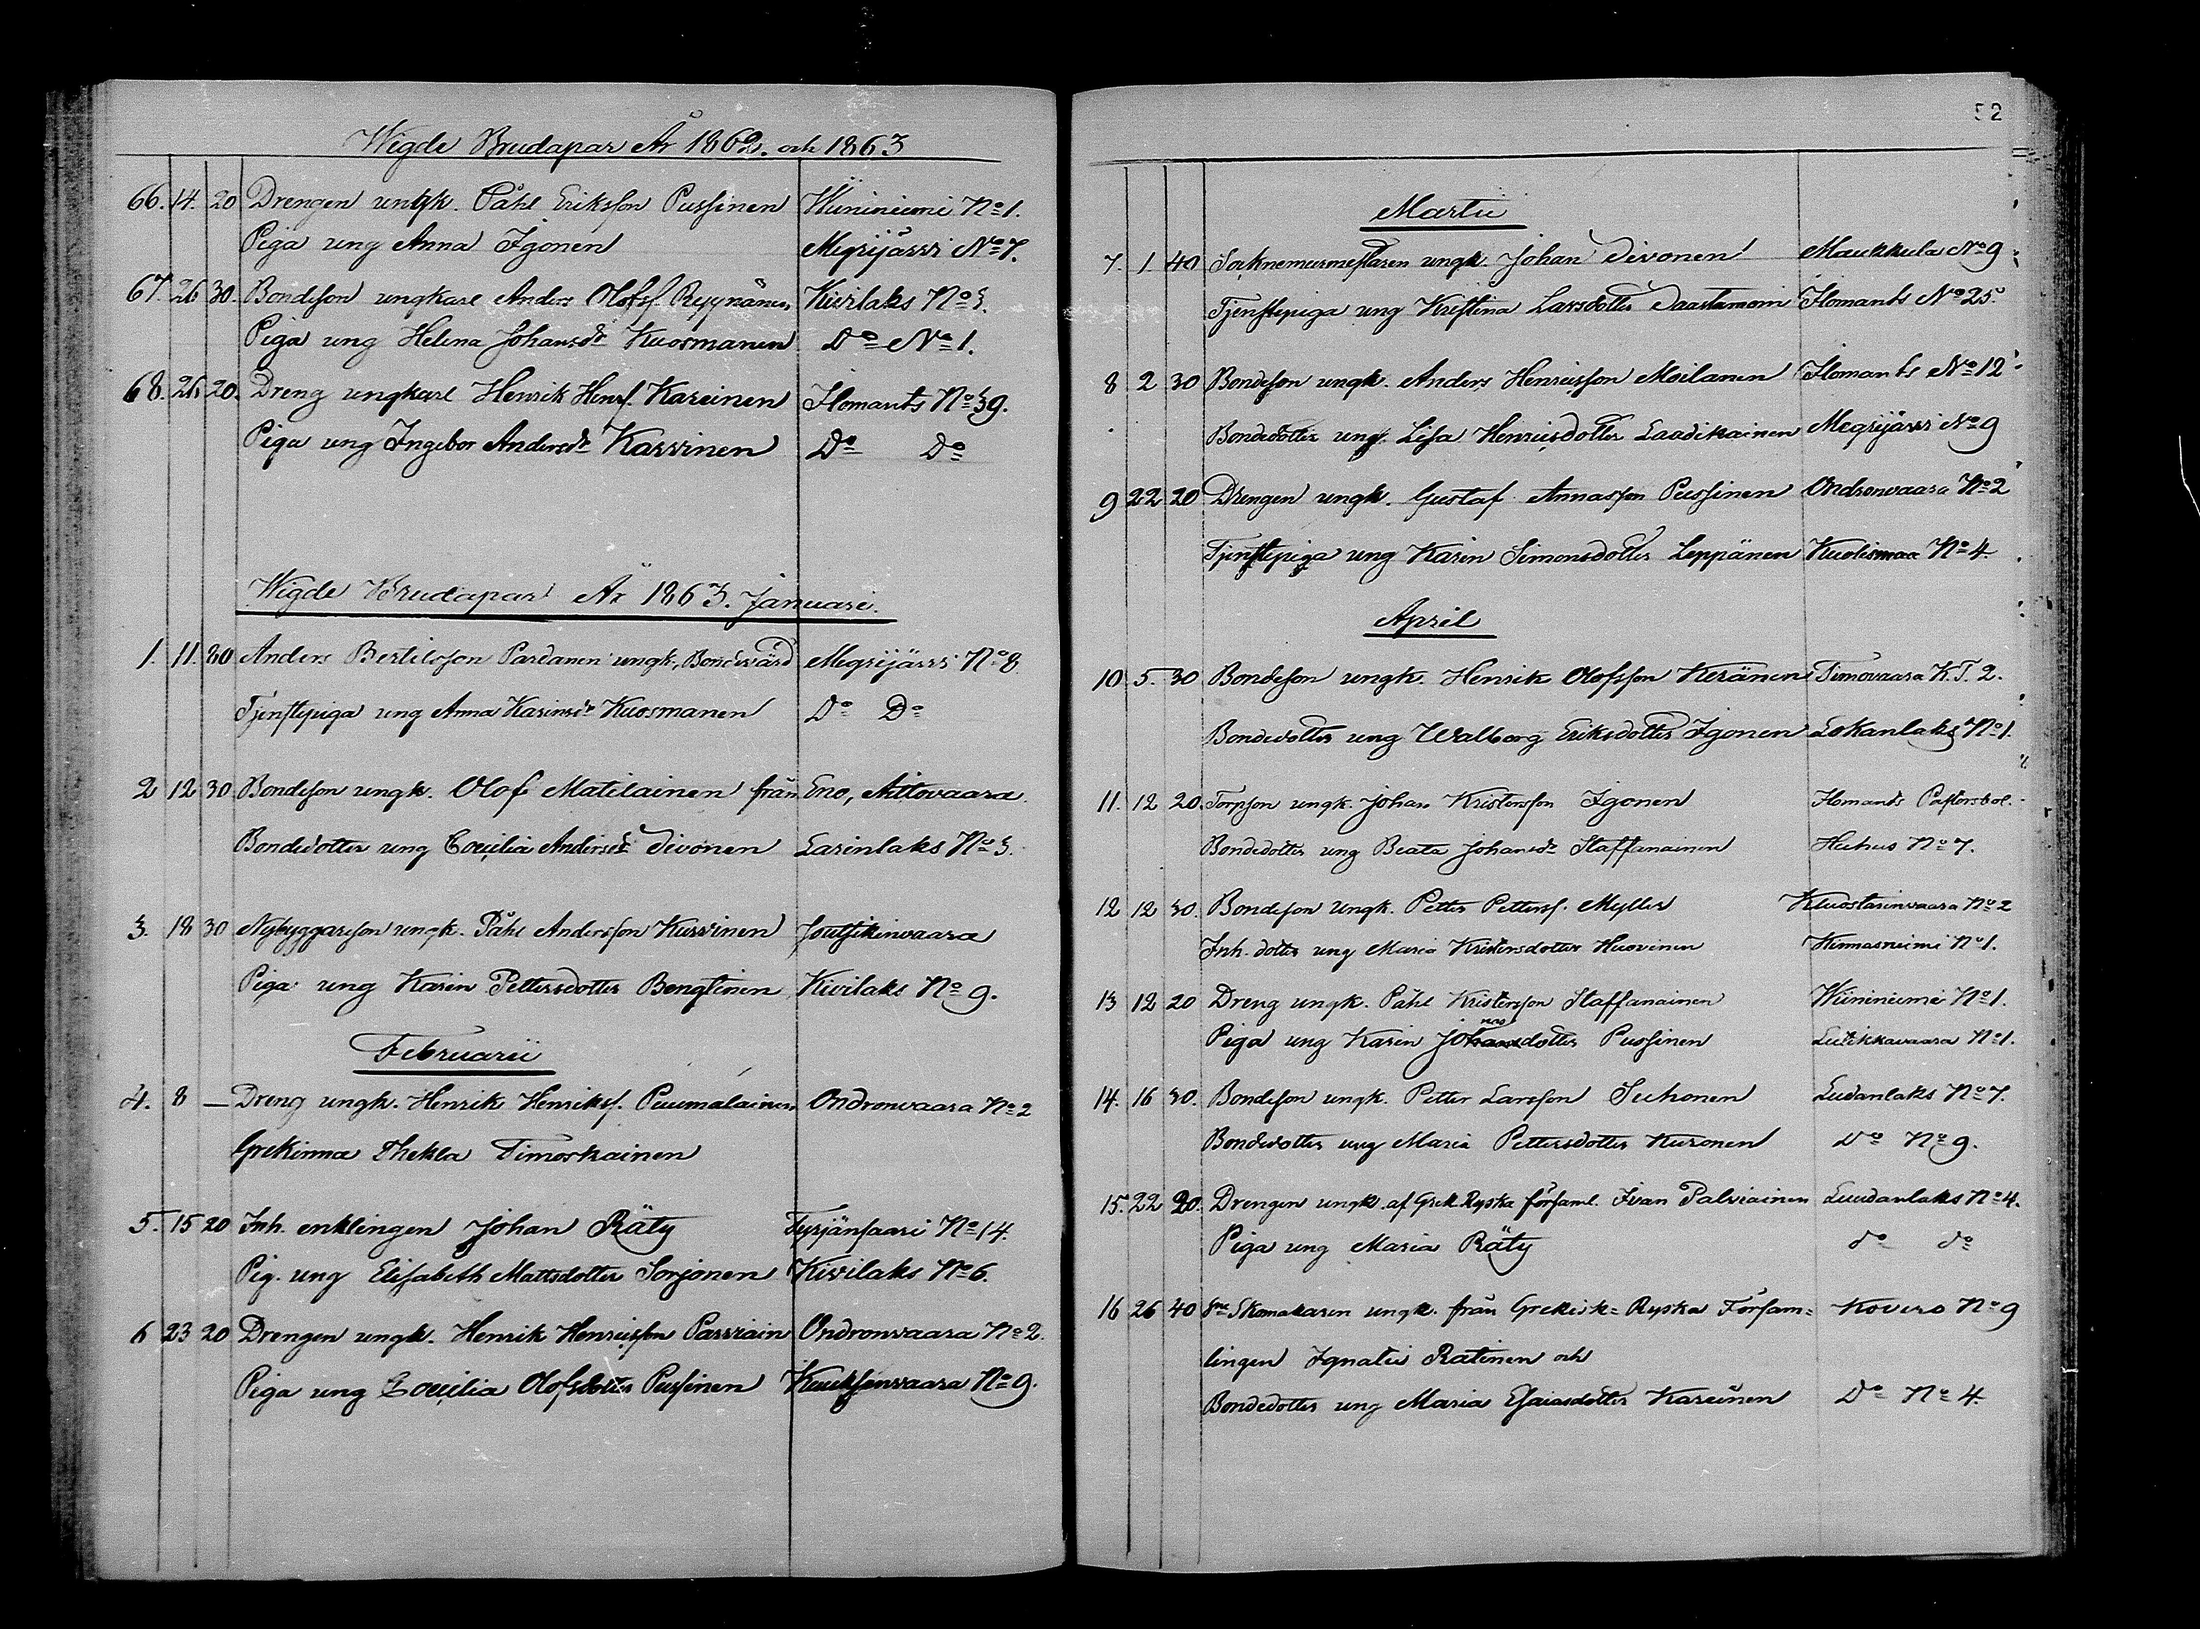 Wigde Brudapar År 1862. och 1863
66. 14. 20 Drengen ungk. Påhl Eriksson Pussinen Wiininiemi No 1.
Piga ung Anna Igonen Megrijärvi No 7.
67. 26 30. Bondeson ungkarl Anders Olofsf. Ryynänen Kivilaks No 3.
Piga ung Helena Johansdr Kuosmanen Do No 1.
68. 26. 20. Dreng ungkarl Henrik Henrs. Kareinen Ilomants No 39.
Piga ung Ingebor Andersdr Karvinen Do Do
Wigde Brudapar År 1863. Januari.
1. 11. 80 Anders Bertilsson Pardanen ungk, Bondevärd Megrijärvi No 8.
Tjenstepiga ung Anna Karinsdr Kuosmanen Do Do
2 12 30 Bondeson ungk. Olof Matilainen från Eno, Ahovaara.
Bondedotter ung Coeçilia Andersdr Sivonen Larinlaks No 3.
3. 18 30 Nybyggareson ungk. Påhl Andersson Kurvinen Joutsikinvaara
Piga ung Karin Pettersdotter Bengtinen Kivilaks No 9.
Februarii
4. 8 — Dreng ungk. Henrik Henriksf. Puumalainen Ondronvaara No 2
Grekinna Thekla Timoskainen
5. 15 20 Inh. enklingen Johan Räty Tyrjänsaari No 14.
Pig. ung Elisabeth Mattsdotter Sorjonen Kivilaks No 6.
6 23 20 Drengen ungk. Henrik Henricsson Parviain Ondronvaara No 2.
Piga ung Coeçilia Olofsdotter Pussinen Kuuksenvaara No 9.
52
Martii
7. 1. 40 Socknemurmestaren ungk. Johan Sivonen Maukkula No 9
Tjenstepiga ung Kristina Larsdotter Saastamoin Ilomants No 25.
8 2 30 Bondeson ungk. Anders Henricsson Moilanen Ilomants No 12
Bondedotter ung. Lisa Henricsdotter Laadikainen Megrijärvi No 9
9 22 20 Drengen ungk. Gustaf Annasson Pussinen Ondronvaara No 2
Tjenstepiga ung Karin Simonsdotter Leppänen Kuolismaa No 4.
April
10 5. 30 Bondeson ungk. Henrik Olofsson Keränen Timovaara K.T. 2.
Bondedotter ung Walborg Eriksdotter Igonen Lokanlaks No 1.
11. 12 20. Torpson ungk. Johan Kristersson Igonen Ilomants Pastorsbol.
Bondedotter ung Beata Johansdr Staffanainen Huhus No 7.
12 12 30. Bondeson Ungk. Petter Petters. Myller Kluostarinvaara No 2
Inh. dotter ung Maria Kristersdotter Huovinen Kinnasniemi No 1.
13 12 20 Dreng ungk. Påhl Kristersson Staffanainen Wiininiemi No 1.
Piga ung Karin Johansdotter Pussinen Lutikkavaara No 1.
14. 16 30. Bondeson ungk. Petter Larsson Suhonen Ludanlaks No 7.
Bondedotter ung Maria Pettersdotter Kuronen Do No 9.
15. 22 20. Drengen ungk. af Grek. Ryska församl. Ivan Palviainen Luudanlaks No 4.
Piga ung Maria Räty do do
16 26 40 Skomakaren ungk. från Grekisk= Ryska Försam= Kovero No 9
lingen Ignatii Ratinen och
Bondedotter ung Maria Esaiasdotter Kareinen Do No 4.